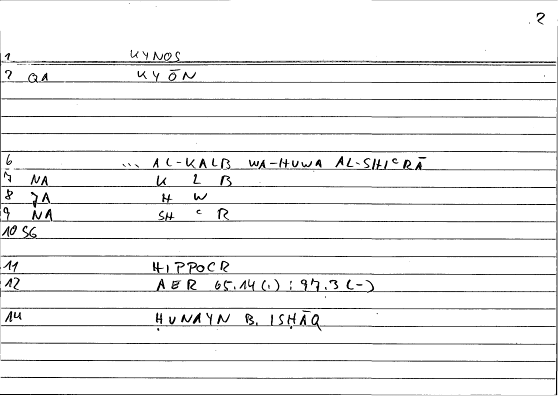 2
1 KYNOS
2 QA KYŌN
6 ... AL-KALB WA-HUWA AL-SHIᶜRĀ
7 NA K L B
8 JA H W
9 NA SH ᶜ R
10 SG
11 HIPPOCR
12 AER 65.14 (.) : 97.3 (-)
14 ḤUNAYN B. ISḤĀQ